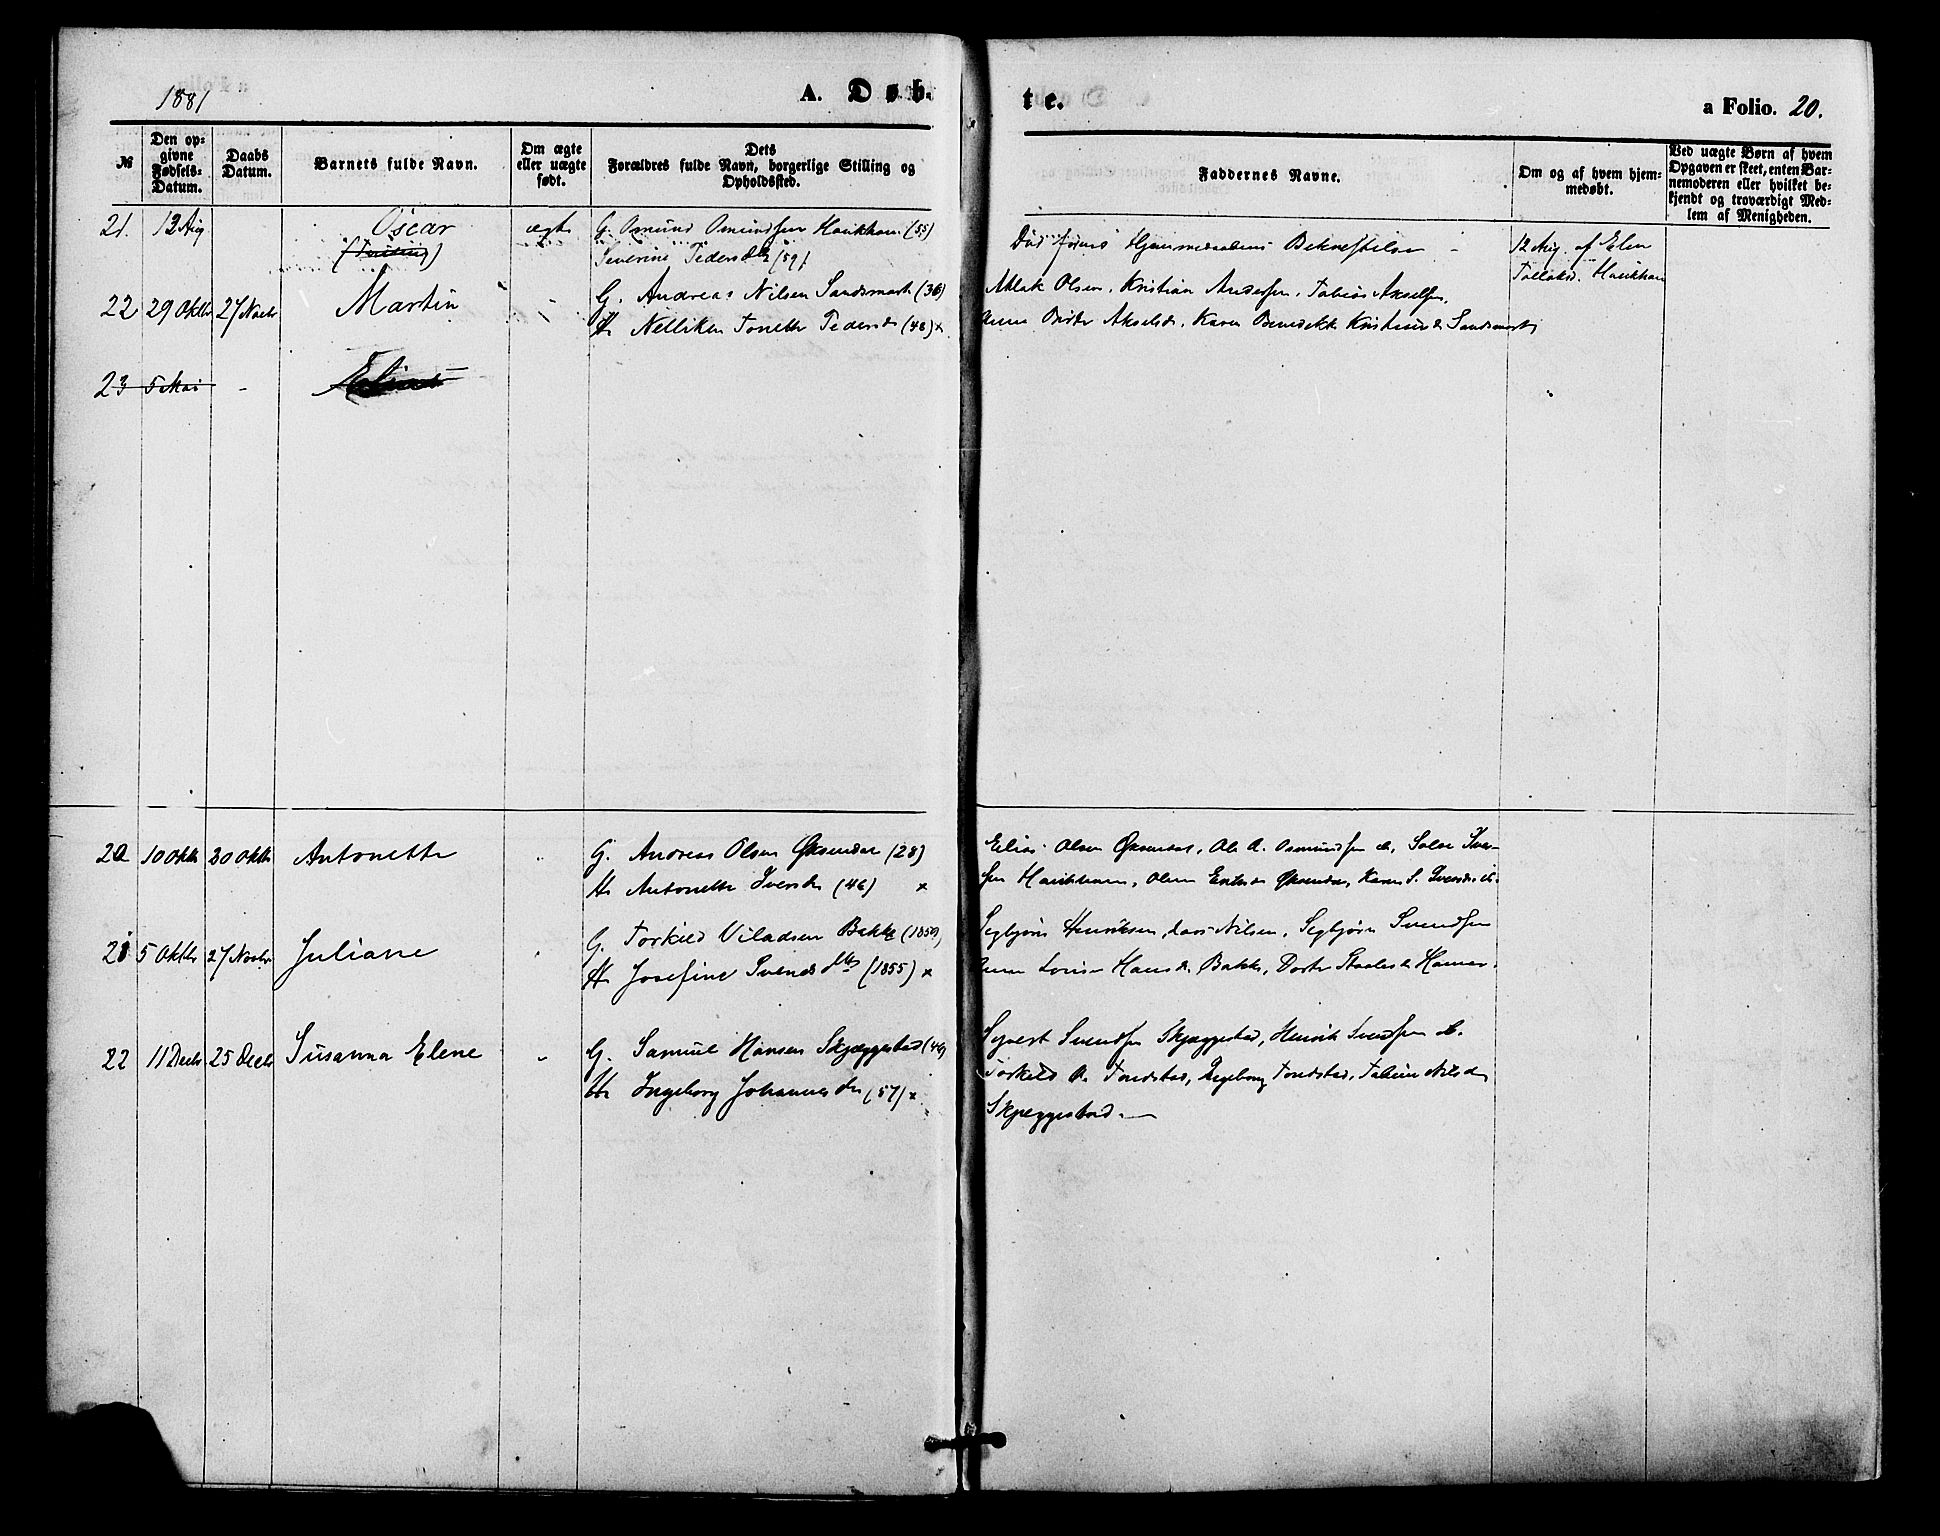 1881
A. Døb-
te.
a Folio. 20.
№
Den op-
givne
Fødsels-
Datum.
Daabs
Datum.
Barnets fulde Navn.
Om ægte
eller uægte
født.
Dets
Forældres fulde Navn, borgerlige Stilling og
Opholdssted.
Faddernes Navne.
Om og af hvem hjem-
medøbt.
Ved uægte Børn af hvem
Opgaven er skeet, enten Bar-
nemoderen eller hvilket be-
kjendt og troværdigt Med-
lem af Menigheden.
21. 12 Aug Oscar ægte G. Osmund Osmundsen Haukhom (55)
Severine Pedersdtr (59)
Død førend Hjemmedaabens Bekræftelse -
12 Aug. af Elen
Tollaksd. Haukhom
22 29 Oktbr 27 Novbr Martin " G. Andreas Nilsen Sandsmark (36)
H. Nelliken Tonette Pedersdr (48) x
Atlak Olsen, Kristian Andersen, Tobias Akselsen,
Anne Birte Akselsd. Karen Benedikte Kristensdr Sandsmark
23 5 Mai -
20 10 Oktb 30 Oktb Antonette " G. Andreas Olsen Øksendal (28)
H. Antonette Iversdr (46) x
Elias Olsen Øksendal, Ole A. Osmundsen do, Salve Iver-
sen Haukhom, Olene Øksendal, Karen S. Iversdr do.
21 5 Oktbr 27 Novbr Juliane " G. Torkild Viladsen Bakke (1850)
H. Josefine Svendsdtr (1855) x
Segbjørn Henriksen, Lars Nilsen, Segbjørn Svendsen
Anne Lovise Hansdr Bakke, Dorte Staalesdr Hamar.
22 11 Decbr 25 Decbr Susanna Elene " G. Samuel Hansen Skjæggestad (46)
H. Ingeborg Johannesdr (57) x
Syvert Svendsen Skjæggestad, Henrik Svendsen do.
Torkild A. Fondstad, Ingeborg Fondstad, Tabine Nilsdr
Skjæggestad. —